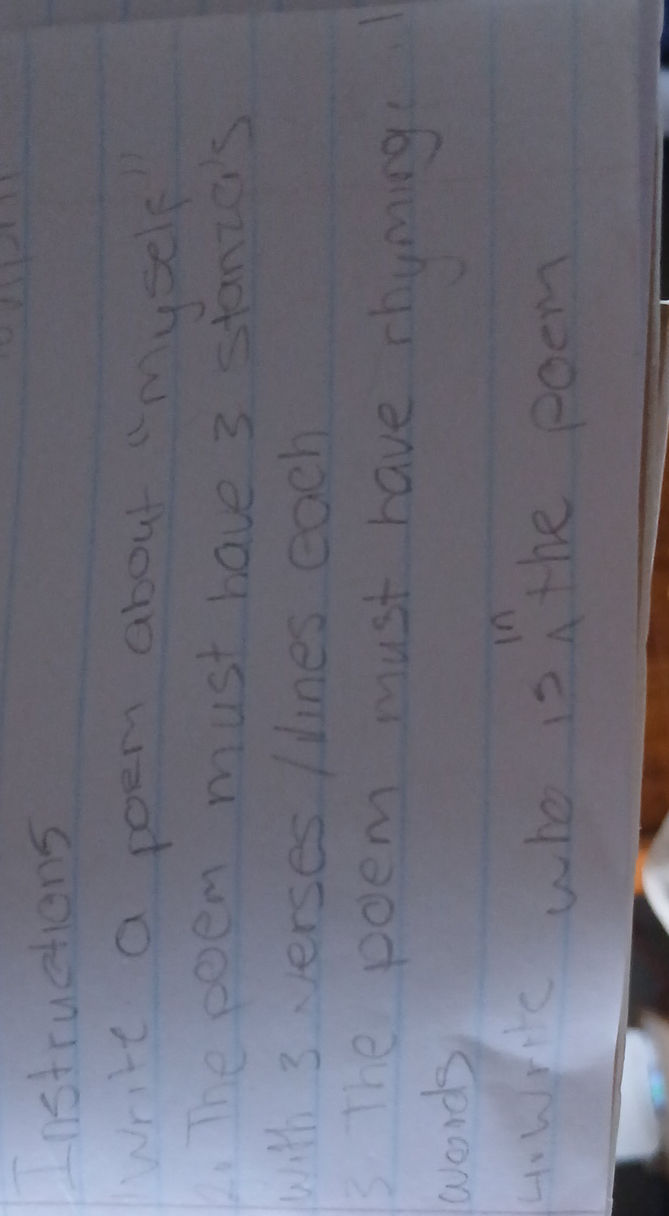 Instructions
1 Write a poem about "Myself"
2. The poem must have 3 stanza's
with 3 verses/lines each
3 The poem must have rhyming
words
4. Write who is in the poem